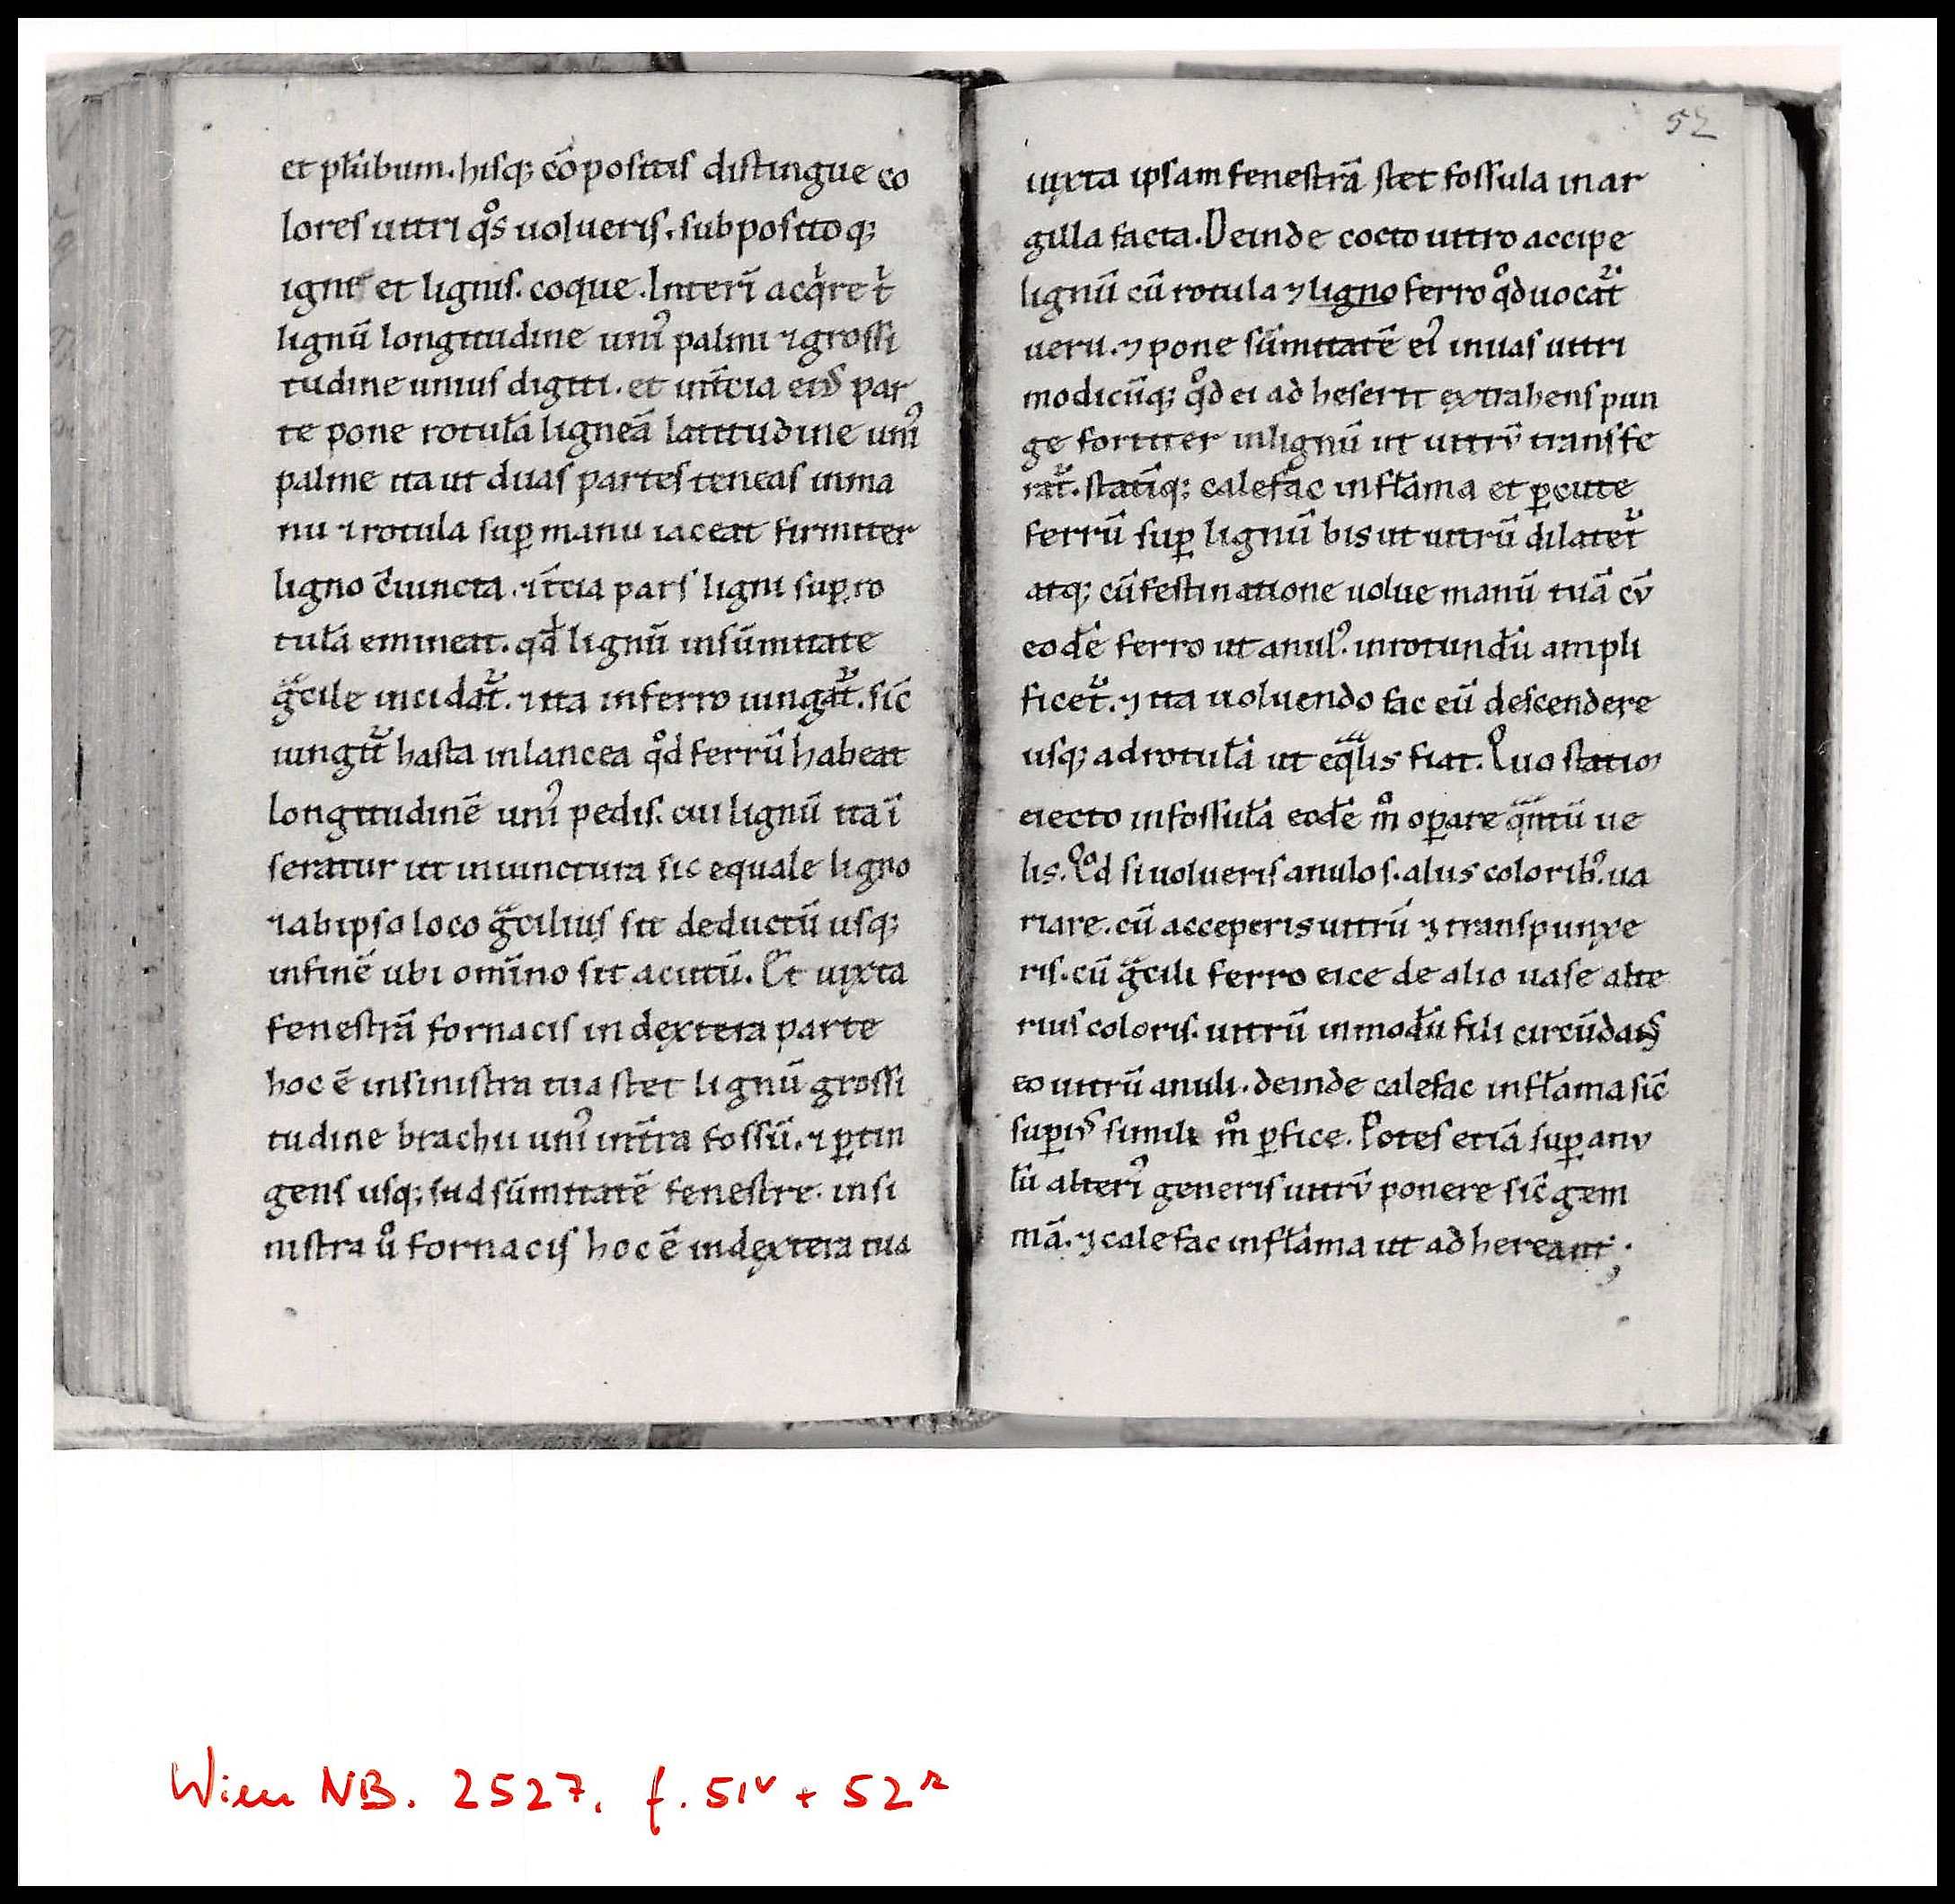 et plũbum. hisq; cõpositis distingue co
lores uitri qͦs uolueris. subpositoq;
igne et lignis. coque. Interĩ acqͥre tͥ
lignũ longitudine uniꝰ palmi ⁊grossi
tudine unius digiti. et intͨia eiꝰ par
te pone rotulã ligneã latitudine uniꝰ
palme ita ut duas partes teneas inma
nu ⁊rotula suꝑ manu iaceat firmiter
ligno c̃iuncta. ⁊tͨia pars ligni suꝑ ro
tulã emineat. qđ lignũ insũmitate
gͣcile incidat᷑. ⁊ita inferro iungat᷑. sic̃
iungit᷑ hasta inlancea qͦd ferrũ habeat
longitudinẽ uniꝰ pedis. cui lignũ ita ĩ
seratur ut iniunctura sic equale ligno
⁊abipso loco gͣcilius sit deductũ usq;
infinẽ ubi omĩno sit acutũ. Et iuxta
fenestrã fornacis in dextera parte
hoc ẽ insinistra tua stet lignũ grossi
tudine brachii uniꝰ int̃ra fossũ. ⁊ꝑtin
gens usq; ad sũmitatẽ fenestre. insi
nistra uͦ fornacis hoc ẽ indextera tua
52
iuxta ipsam fenestrã stet fossula inar
gilla facta. Deinde cocto uitro accipe
lignũ cũ rotula ⁊ ligno ferro qͦd uocat᷑
ueru. ⁊ pone sũmitatẽ eiꝰ inuas uitri
modicũq; qͦd ei ad heserit extrahens pun
ge fortiter inlignũ ut uitrũ transfe
rat᷑. statĩq; calefac inflãma et ꝑcute
ferrũ suꝑ lignũ bis ut uitrũ dilatet᷑
atq; cũ festinatione uolue manũ tuã cũ
eodẽ ferro ut anulꝰ. inrotundũ ampli
ficet᷑. ⁊ ita uoluendo fac eũ descendere
usq; adrotulã ut eqͣlis fiat. Quo statim
eiecto infossulã eodẽ mͦ oꝑare qͣntũ ue
lis. Qͦd si uolueris anulos. aliis coloribꝰ. ua
riare. cũ acceperis uitrũ ⁊ transpunxe
ris. cũ gͣcili ferro eice de alio uase alte
rius coloris. uitrũ inmodũ fili circũdãs
eo uitrũ anuli. deinde calefac inflãma sic̃
suꝑiꝰ simili mͦ ꝑfice. Potes etiã suꝑ anu
lũ alteriꝰ generis uitrũ ponere sic̃ gem
mã. ⁊ calefac inflãma ut ad hereant;
Wien NB. 2527, f. 51v + 52r